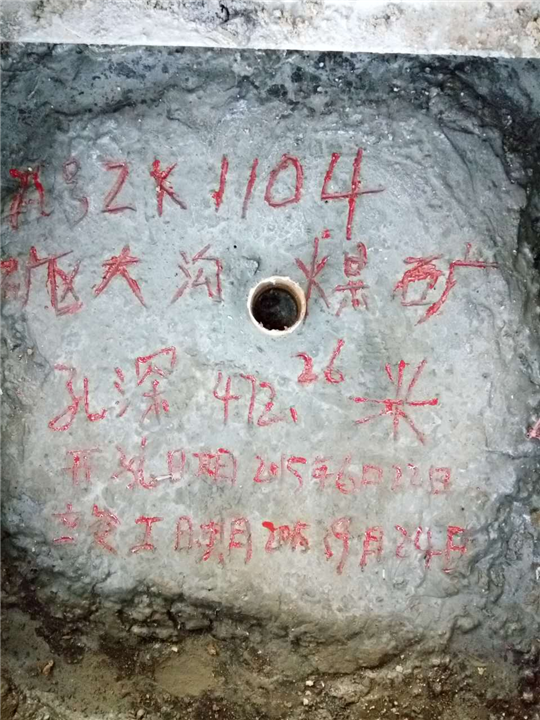 孔号ZK1104
矿区大沟煤矿
孔深472.26米
开孔日期2015年6月22日
工日期2015 9月24日